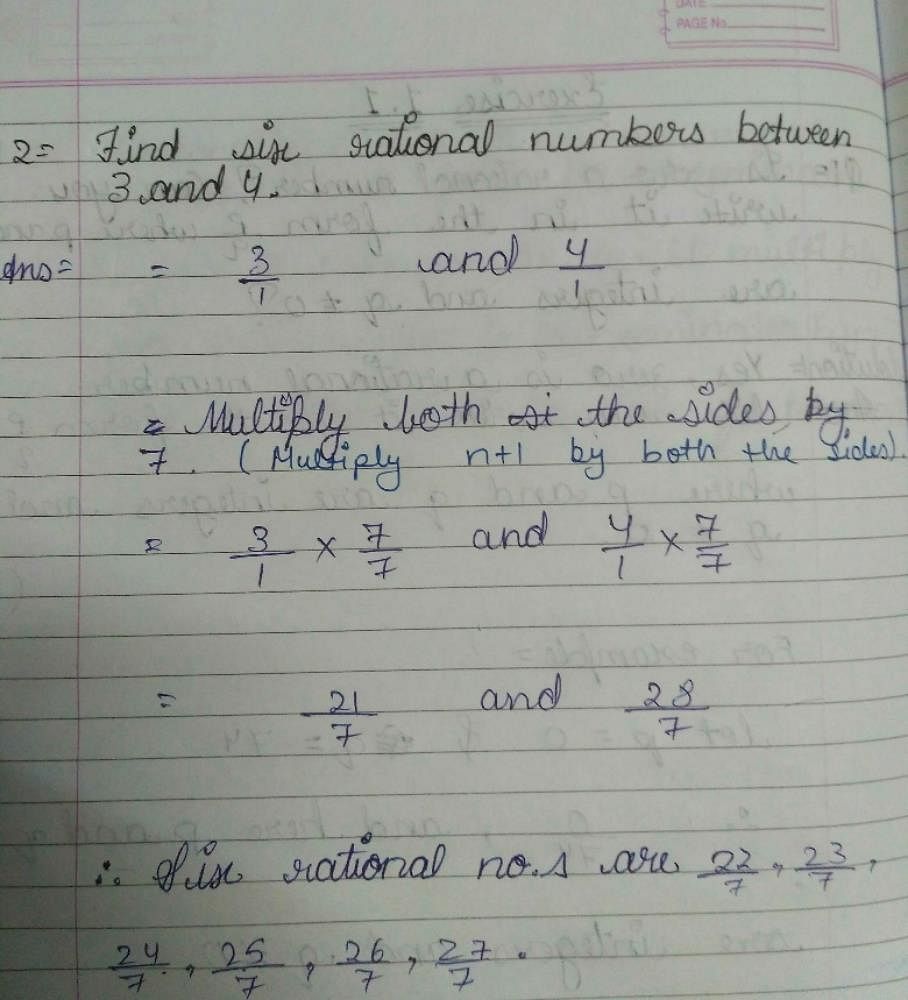 DATE
PAGE No
2= Find six rational numbers between
3 and 4.
Ans= = 3/1 and 4/1
= Multiply both st the sides by
7. (Multiply n+1 by both the sides).
= 3/1 × 7/7 and 4/1 × 7/7
= 21/7 and 28/7
∴ Six rational no.s are 22/7, 23/7,
24/7, 25/7, 26/7, 27/7.